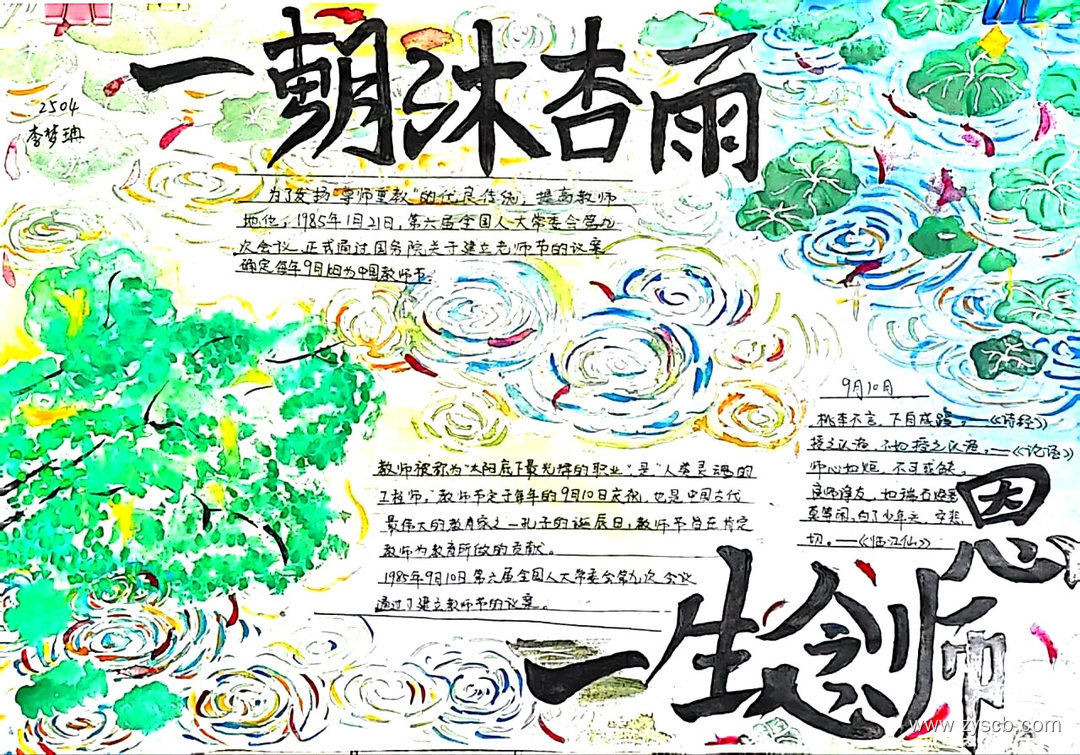 一朝沐杏雨
2504
李梦珊
为了发扬"尊师重教"的优良传统,提高教师
地位,1985年1月21日,第六届全国人大常委会第九
次会议 正式通过国务院关于建立老师节的议案
确定每年9月10日为中国教师节.
9月10日
桃李不言,下自成蹊。—《诗经》
授之以 不如授之以渔。—《论语》
师心如 不可或缺。
良师诤友,如
莫等闲,白了少年头,空悲
切。—《临江仙》
教师被称为"太阳底下最光辉的职业"是"人类灵魂的
工程师,"教师节定于每年的9月10日庆祝,也是中国古代
最伟大的教育家之一孔子的诞辰日,教师节旨在肯定
教师为教育所做的贡献。
1985年9月10日第六届全国人大常委会第九次会议
通过了建立教师节的议案。
一生念师恩
www.zyscb.com